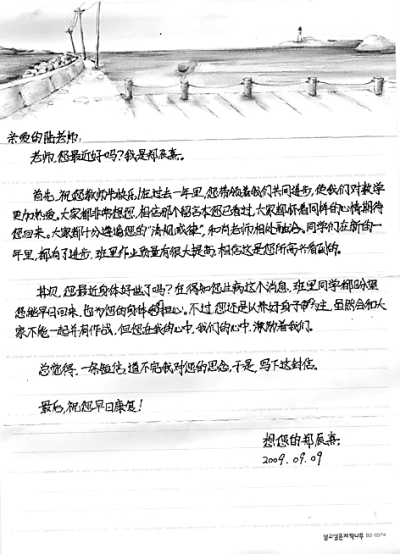 亲爱的陆老师:
老师,您最近好吗?我是郑辰熹。
首先,祝您教师节快乐!在过去一年里,您带领着我们共同进步,使我们对数学
更加热爱。大家都非常想您,相信那个纪念本您已看过,大家都怀着同样的心情期待
您回来。大家都十分遵遁您的“清规戒律”,和尚老师相处融洽。同学们在新的一
年里,都有了进步,班里作业质量有很大提高,相信这是您所高兴看到的。
其次,您最近身体好些了吗?在得知您生病这个消息,班里同学都盼望
您能早日回来,也为您的身体担心。不过,您还是以养好身子为主,虽然会和大
家不能一起并肩作战,但您在我的心中,我们的心中,激励着我们。
总觉得,一条短信,道不完我对您的思念,于是,写下这封信。
最后,祝您早日康复!
想您的郑辰熹
2009.09.09